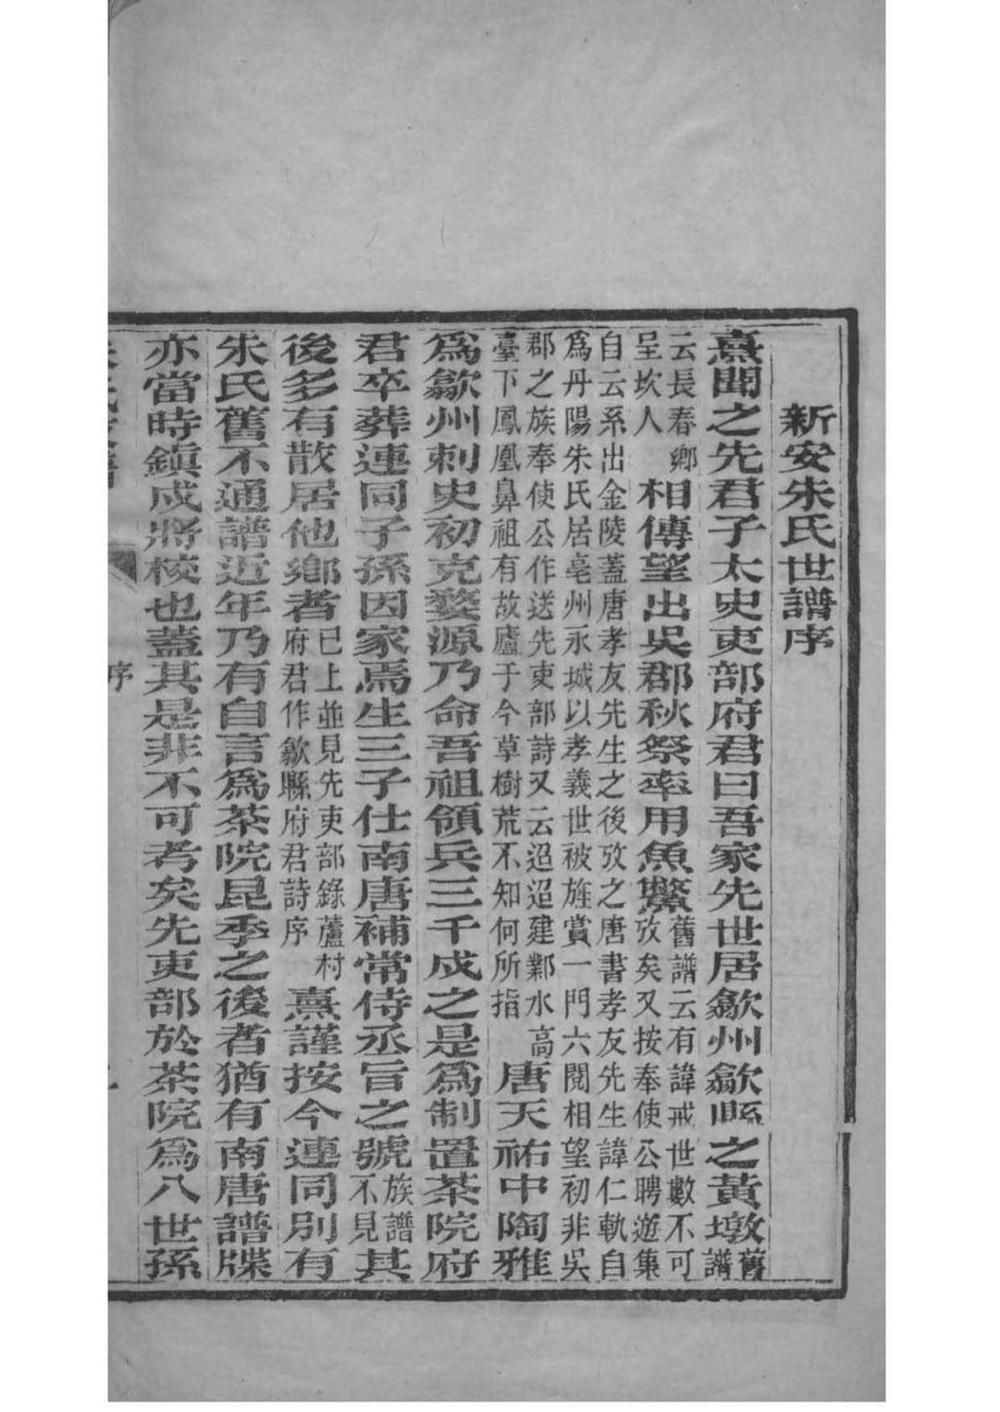 新安朱氏世譜序
熹聞之先君子太史吏部府君曰吾家先世居歙州歙縣之黃墩舊譜
云長春鄉呈坎人相傳望出吳郡秋祭率用魚鱉舊譜云有諱戒世數不可攷矣又按奉使公聘遊集
自云系出金陵蓋唐孝友先生之後攷之唐書孝友先生諱仁軌自
爲丹陽朱氏居亳州永城以孝義世被旌賞一門六閱相望初非吳
郡之族奉使公作送先吏部詩又云迢迢建鄴水高臺下鳳凰鼻祖有故廬于今草樹荒不知何所指唐天祐中陶雅
爲歙州刺史初克婺源乃命吾祖領兵三千戍之是爲制置茶院府
君卒葬連同子孫因家焉生三子仕南唐補常侍丞旨之號族譜不見其
後多有散居他鄉者已上並見先吏部錄蘆村府君作歙縣府君詩序熹謹按今連同別有
朱氏舊不通譜近年乃有自言爲茶院昆季之後者猶有南唐譜牒
亦當時鎮戍將校也蓋其是非不可考矣先吏部於茶院爲八世孫
序